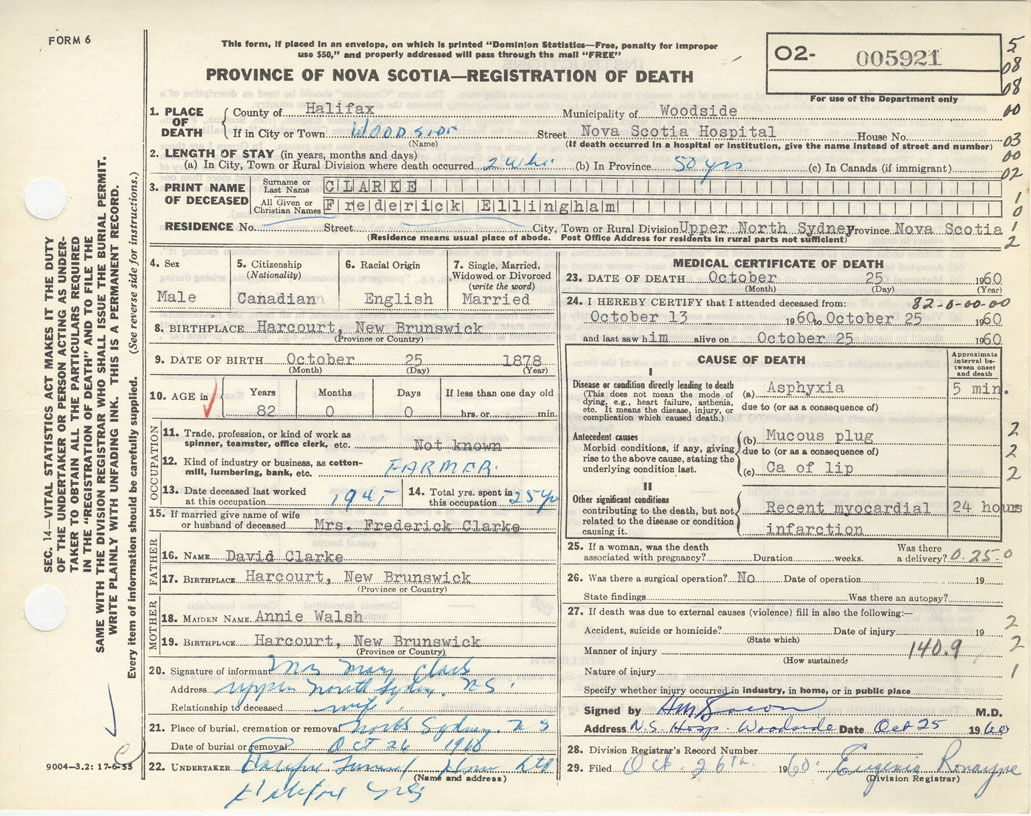 FORM 6
This form, if placed in an envelope, on which is printed "Dominion Statistics—Free, penalty for improper
use $50," and properly addressed will pass through the mail "FREE"
PROVINCE OF NOVA SCOTIA—REGISTRATION OF DEATH
02- 005921
For use of the Department only
5
08
08
00
03
00
02
1
0
1
2
SEC. 14—VITAL STATISTICS ACT MAKES IT THE DUTY
OF THE UNDERTAKER OR PERSON ACTING AS UNDER-
TAKER TO OBTAIN ALL THE PARTICULARS REQUIRED
IN THE "REGISTRATION OF DEATH" AND TO FILE THE
SAME WITH THE DIVISION REGISTRAR WHO SHALL ISSUE THE BURIAL PERMIT.
WRITE PLAINLY WITH UNFADING INK. THIS IS A PERMANENT RECORD.
Every item of information should be carefully supplied. (See reverse side for instructions.)
9004—3.2: 17-6-55
1. PLACE OF DEATH
County of Halifax Municipality of Woodside
If in City or Town WOODSIDE Street Nova Scotia Hospital House No.
(Name) (If death occurred in a hospital or institution, give the name instead of street and number)
2. LENGTH OF STAY (in years, months and days)
(a) In City, Town or Rural Division where death occurred 2 Wks (b) In Province 50 yrs (c) In Canada (if immigrant)
3. PRINT NAME OF DECEASED
Surname or Last Name CLARKE
All Given or Christian Names Frederick Ellingham
RESIDENCE No. Street City, Town or Rural Division Upper North Sydney Province Nova Scotia
(Residence means usual place of abode. Post Office Address for residents in rural parts not sufficient)
4. Sex
Male
5. Citizenship
(Nationality)
Canadian
6. Racial Origin
English
7. Single, Married,
Widowed or Divorced
(write the word)
Married
8. BIRTHPLACE Harcourt, New Brunswick
(Province or Country)
9. DATE OF BIRTH October 25 1878
(Month) (Day) (Year)
10. AGE in
Years Months Days If less than one day
82 0 0 hrs. or min.
OCCUPATION
11. Trade, profession, or kind of work as
spinner, teamster, office clerk, etc. Not known
12. Kind of industry or business, as cotton-
mill, lumbering, bank, etc. FARMER.
13. Date deceased last worked
at this occupation 1945
14. Total yrs. spent in
this occupation 25 yr
15. If married give name of wife
or husband of deceased Mrs. Frederick Clarke
FATHER
16. NAME David Clarke
17. BIRTHPLACE Harcourt, New Brunswick
(Province or Country)
MOTHER
18. MAIDEN NAME Annie Walsh
19. BIRTHPLACE Harcourt, New Brunswick
(Province or Country)
20. Signature of informant Mrs Mary Clark
Address Upper North Sydney, N.S.
Relationship to deceased wife
21. Place of burial, cremation or removal North Sydney. N S
Date of burial or removal Oct 26 1960
22. UNDERTAKER Halifax Funeral Home Ltd
(Name and address)
Halifax
MEDICAL CERTIFICATE OF DEATH
23. DATE OF DEATH October 25 1960
(Month) (Day) (Year)
24. I HEREBY CERTIFY that I attended deceased from: 82-0-00-00
October 13 1960 to October 25 1960
and last saw him alive on October 25 1960
CAUSE OF DEATH
Approximate
interval be-
tween onset
and death
I
Disease or condition directly leading to death
(This does not mean the mode of
dying, e.g., heart failure, asthenia,
etc. It means the disease, injury, or
complication which caused death.)
(a) Asphyxia 5 min.
due to (or as a consequence of)
Antecedent causes
Morbid conditions, if any, giving
rise to the above cause, stating the
underlying condition last.
(b) Mucous plug
due to (or as a consequence of)
(c) Ca of lip
2
2
2
II
Other significant conditions
contributing to the death, but not
related to the disease or condition
causing it.
Recent myocardial 24 hours
infarction
25. If a woman, was the death
associated with pregnancy? Duration weeks. Was there
a delivery? 0.25.0
26. Was there a surgical operation? No Date of operation 19
State findings Was there an autopsy?
27. If death was due to external causes (violence) fill in also the following:—
Accident, suicide or homicide? Date of injury 19 2
(State which)
Manner of injury 140.9 2
(How sustained)
Nature of injury 1
Specify whether injury occurred in industry, in home, or in public place
Signed by M.D.
Address N.S. Hosp. Woodside Date Oct 25 1960
28. Division Registrar's Record Number
29. Filed Oct. 26th. 1960. Eugenie Ronayne
(Division Registrar)